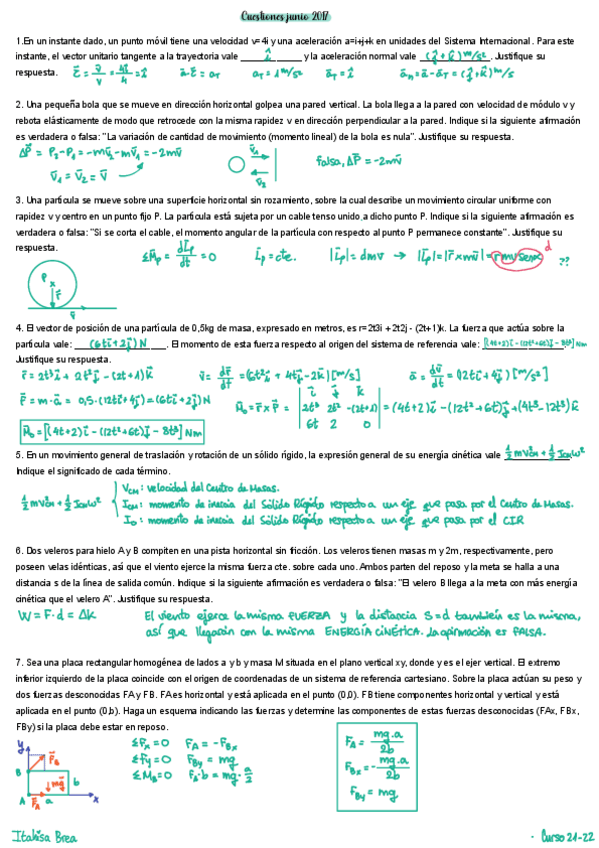 Cuestiones junio 2017
1.En un instante dado, un punto móvil tiene una velocidad v=4i y una aceleración a=i+j+k en unidades del Sistema Internacional. Para este
instante, el vector unitario tangente a la trayectoria vale î y la aceleración normal vale (ĵ+k̂) m/s². Justifique su
respuesta. ε⃗ = v⃗/v = 4î/4 = î a⃗·ε⃗ = aT aT = 1 m/s² a⃗T = î a⃗n = a⃗ - a⃗T = (ĵ+k̂) m/s²
2. Una pequeña bola que se mueve en dirección horizontal golpea una pared vertical. La bola llega a la pared con velocidad de módulo v y
rebota elásticamente de modo que retrocede con la misma rapidez v en dirección perpendicular a la pared. Indique si la siguiente afirmación
es verdadera o falsa: "La variación de cantidad de movimiento (momento lineal) de la bola es nula". Justifique su respuesta.
ΔP⃗ = P₂-P₁ = -mv⃗₂-mv⃗₁ = -2mv⃗
v⃗₁ = v⃗₂ = v⃗
v⃗₁
v⃗₂
falsa, ΔP⃗ = -2mv⃗
3. Una partícula se mueve sobre una superficie horizontal sin rozamiento, sobre la cual describe un movimiento circular uniforme con
rapidez v y centro en un punto fijo P. La partícula está sujeta por un cable tenso unido a dicho punto P. Indique si la siguiente afirmación es
verdadera o falsa: "Si se corta el cable, el momento angular de la partícula con respecto al punto P permanece constante". Justifique su
respuesta.
ΣM⃗p = dL⃗p/dt = 0 L⃗p = cte. |L⃗p| = dmv → |L⃗p| = |r⃗ x mv⃗| = r mv senα d
??
P
r⃗
4. El vector de posición de una partícula de 0,5kg de masa, expresado en metros, es r=2t3i + 2t2j - (2t+1)k. La fuerza que actúa sobre la
partícula vale: (6tî+2ĵ) N. El momento de esta fuerza respecto al origen del sistema de referencia vale: [(4t+2)î-(12t²+6t)ĵ-8t³k̂] Nm
Justifique su respuesta.
r⃗ = 2t³î + 2t²ĵ - (2t+1)k̂ v⃗ = dr⃗/dt = (6t²î + 4tĵ - 2k̂) [m/s] a⃗ = dv⃗/dt = (12tî + 4ĵ) [m/s²]
F⃗ = m·a⃗ = 0,5·(12tî+4ĵ) = (6tî+2ĵ) N
M⃗o = r⃗ x F⃗ = | î ĵ k̂ | 2t³ 2t² -(2t+1) | 6t 2 0 | = (4t+2)î - (12t²+6t)ĵ + (4t³-12t³)k̂
M⃗o = [(4t+2)î - (12t²+6t)ĵ - 8t³k̂] Nm
5. En un movimiento general de traslación y rotación de un sólido rígido, la expresión general de su energía cinética vale ½ mV²CM + ½ ICMω²
Indique el significado de cada término.
½ mV²CM + ½ ICMω²
VCM: velocidad del Centro de Masas.
ICM: momento de inercia del Sólido Rígido respecto a un eje que pasa por el Centro de Masas.
I₀: momento de inercia del Sólido Rígido respecto a un eje que pasa por el CIR
6. Dos veleros para hielo A y B compiten en una pista horizontal sin fricción. Los veleros tienen masas m y 2m, respectivamente, pero
poseen velas idénticas, así que el viento ejerce la misma fuerza cte. sobre cada uno. Ambos parten del reposo y la meta se halla a una
distancia s de la línea de salida común. Indique si la siguiente afirmación es verdadera o falsa: "El velero B llega a la meta con más energía
cinética que el velero A". Justifique su respuesta.
W = F·d = Δk El viento ejerce la misma FUERZA y la distancia S=d también es la misma,
así que llegarán con la misma ENERGÍA CINÉTICA. La afirmación es FALSA.
7. Sea una placa rectangular homogénea de lados a y b y masa M situada en el plano vertical xy, donde y es el ejer vertical. El extremo
inferior izquierdo de la placa coincide con el origen de coordenadas de un sistema de referencia cartesiano. Sobre la placa actúan su peso y
dos fuerzas desconocidas FA y FB. FA es horizontal y está aplicada en el punto (0,0). FB tiene componentes horizontal y vertical y está
aplicada en el punto (0,b). Haga un esquema indicando las fuerzas y determine las componentes de estas fuerzas desconocidas (FAx, FBx,
FBy) si la placa debe estar en reposo.
y
F⃗B
B
mg⃗
b
A F⃗A a x
ΣFx = 0 FA = -FBx
ΣFy = 0 FBy = mg
ΣMB = 0 FA·b = mg·a/2
FA = mg·a/2b
FBx = -mg·a/2b
FBy = mg
Itahisa Brea
· Curso 21-22